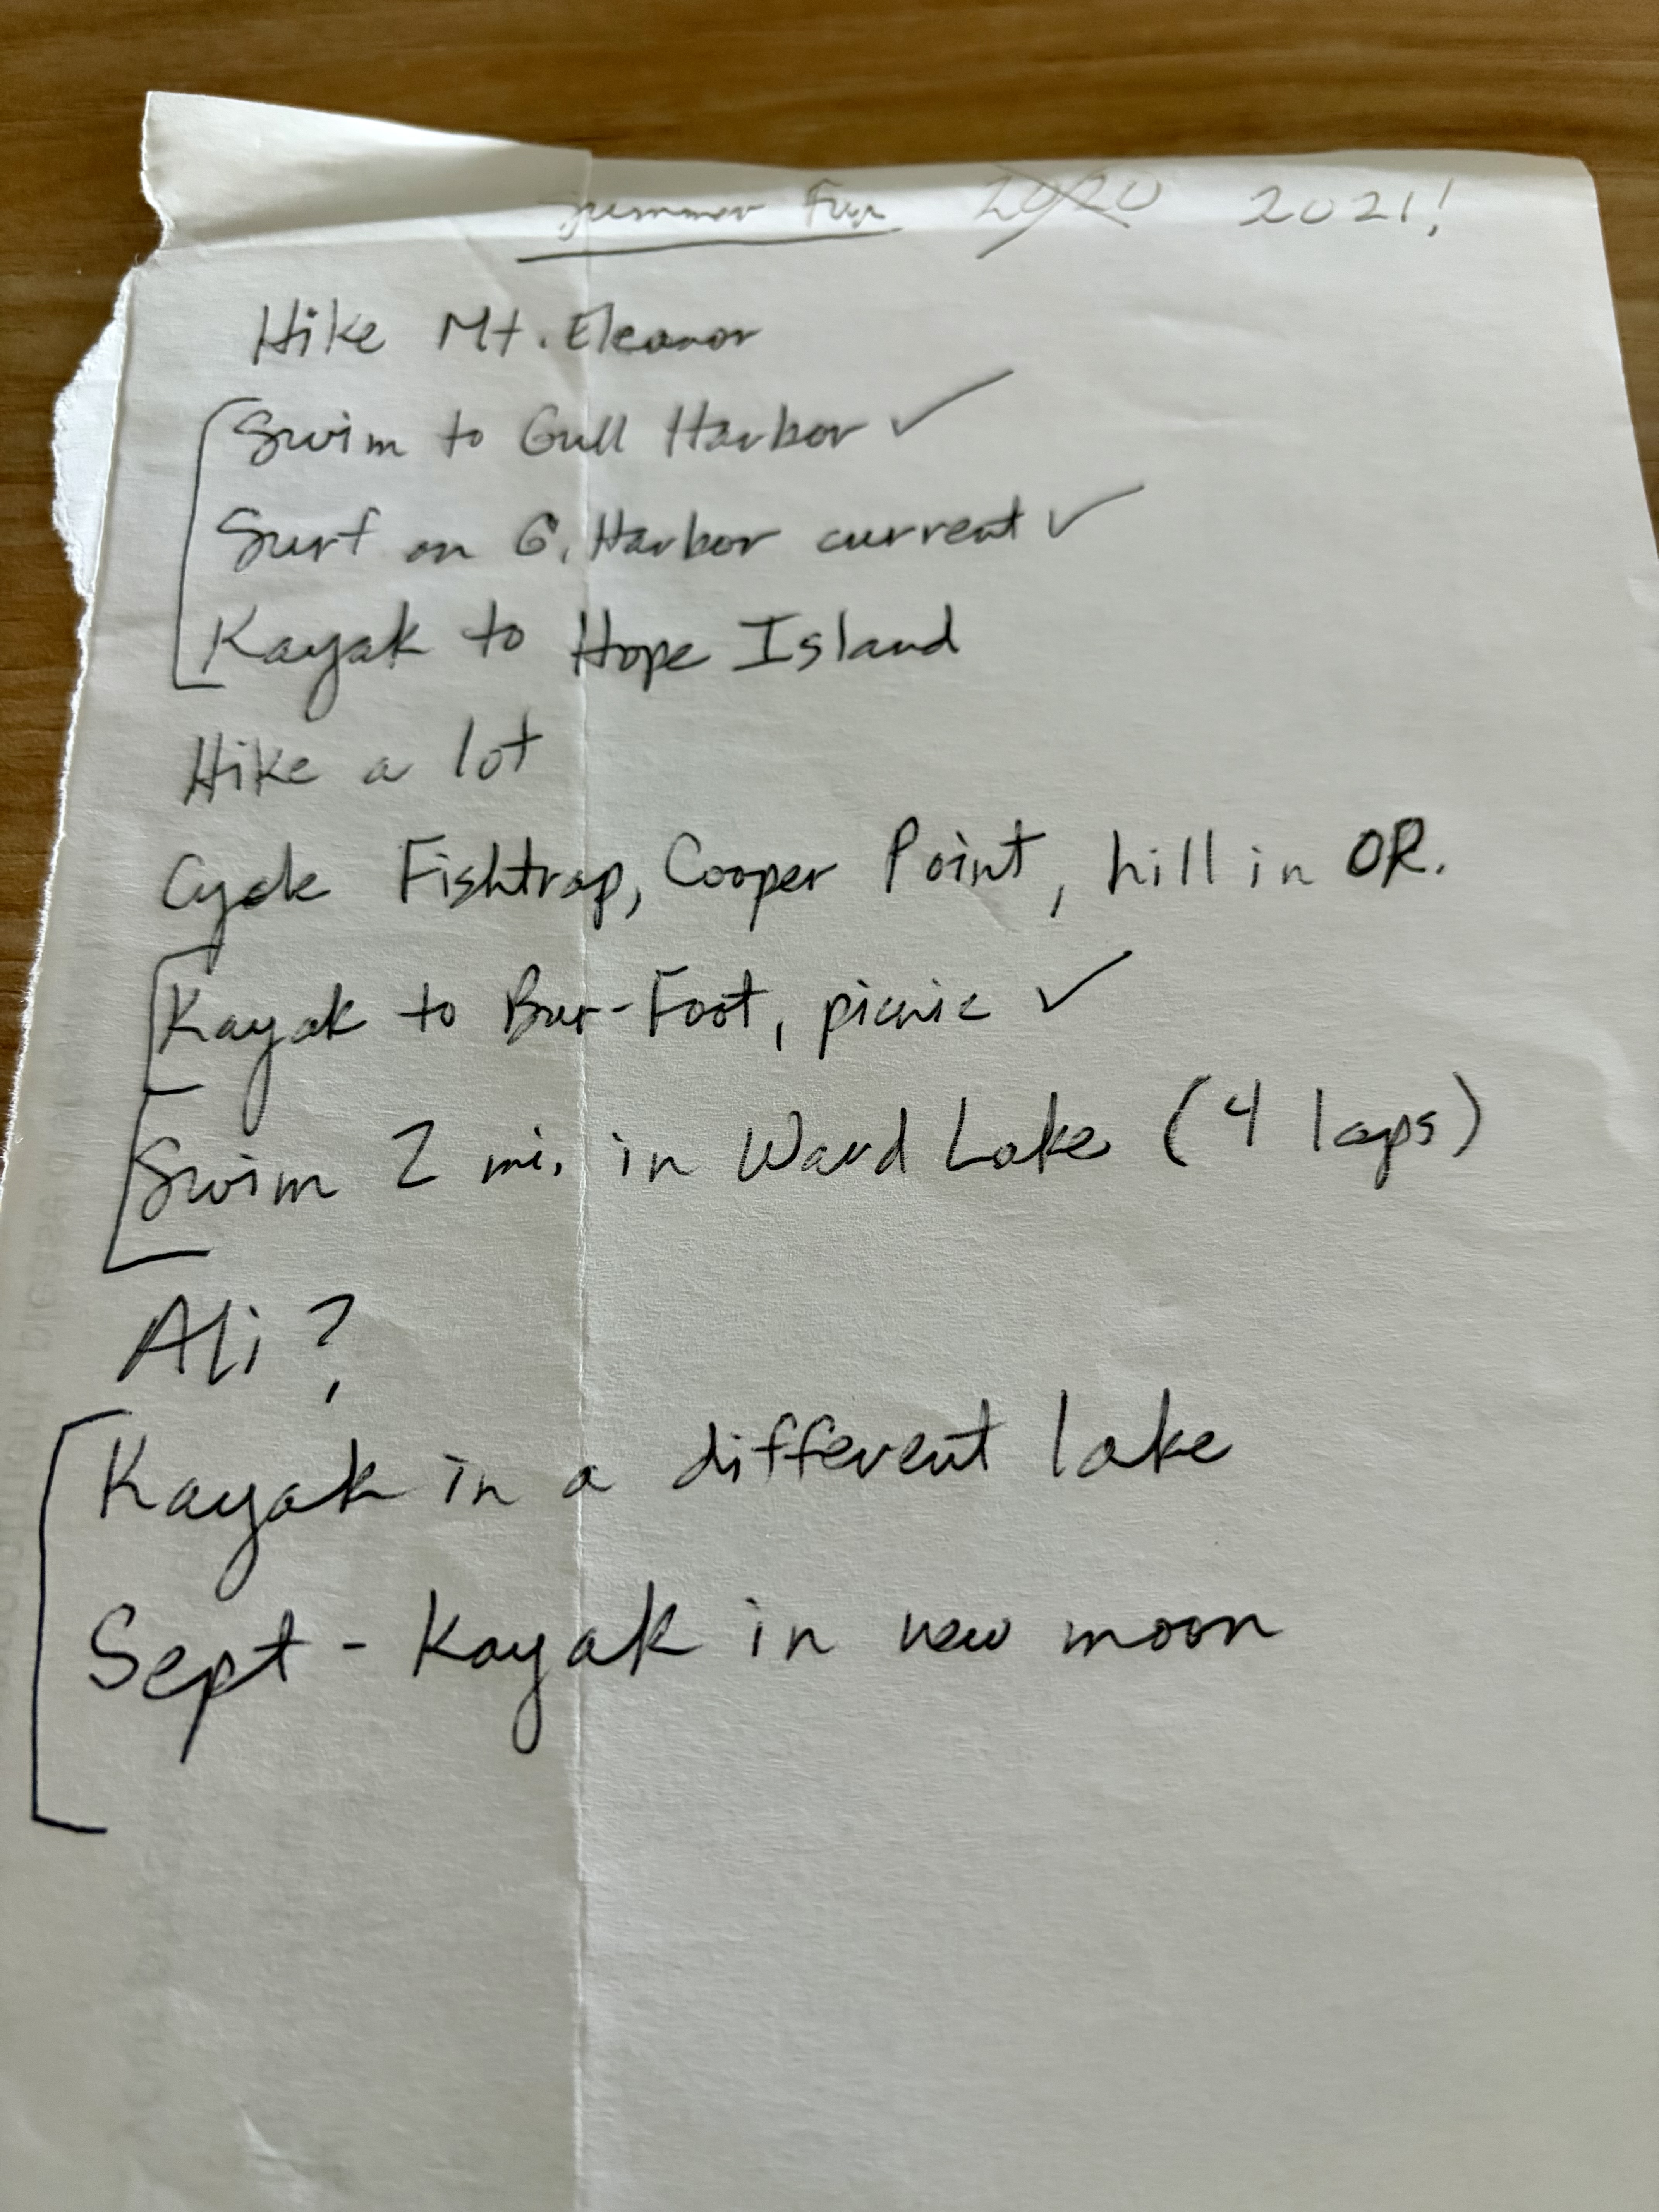 Summer Fun 2020 2021!
Hike Mt. Eleanor
Swim to Gull Harbor ✓
Surf on G. Harbor current ✓
Kayak to Hope Island
Hike a lot
Cycle Fishtrap, Cooper Point, hill in OR.
Kayak to Bur-Foot, picnic ✓
Swim 2 mi. in Ward Lake (4 laps)
Ali?
Kayak in a different lake
Sept - Kayak in new moon